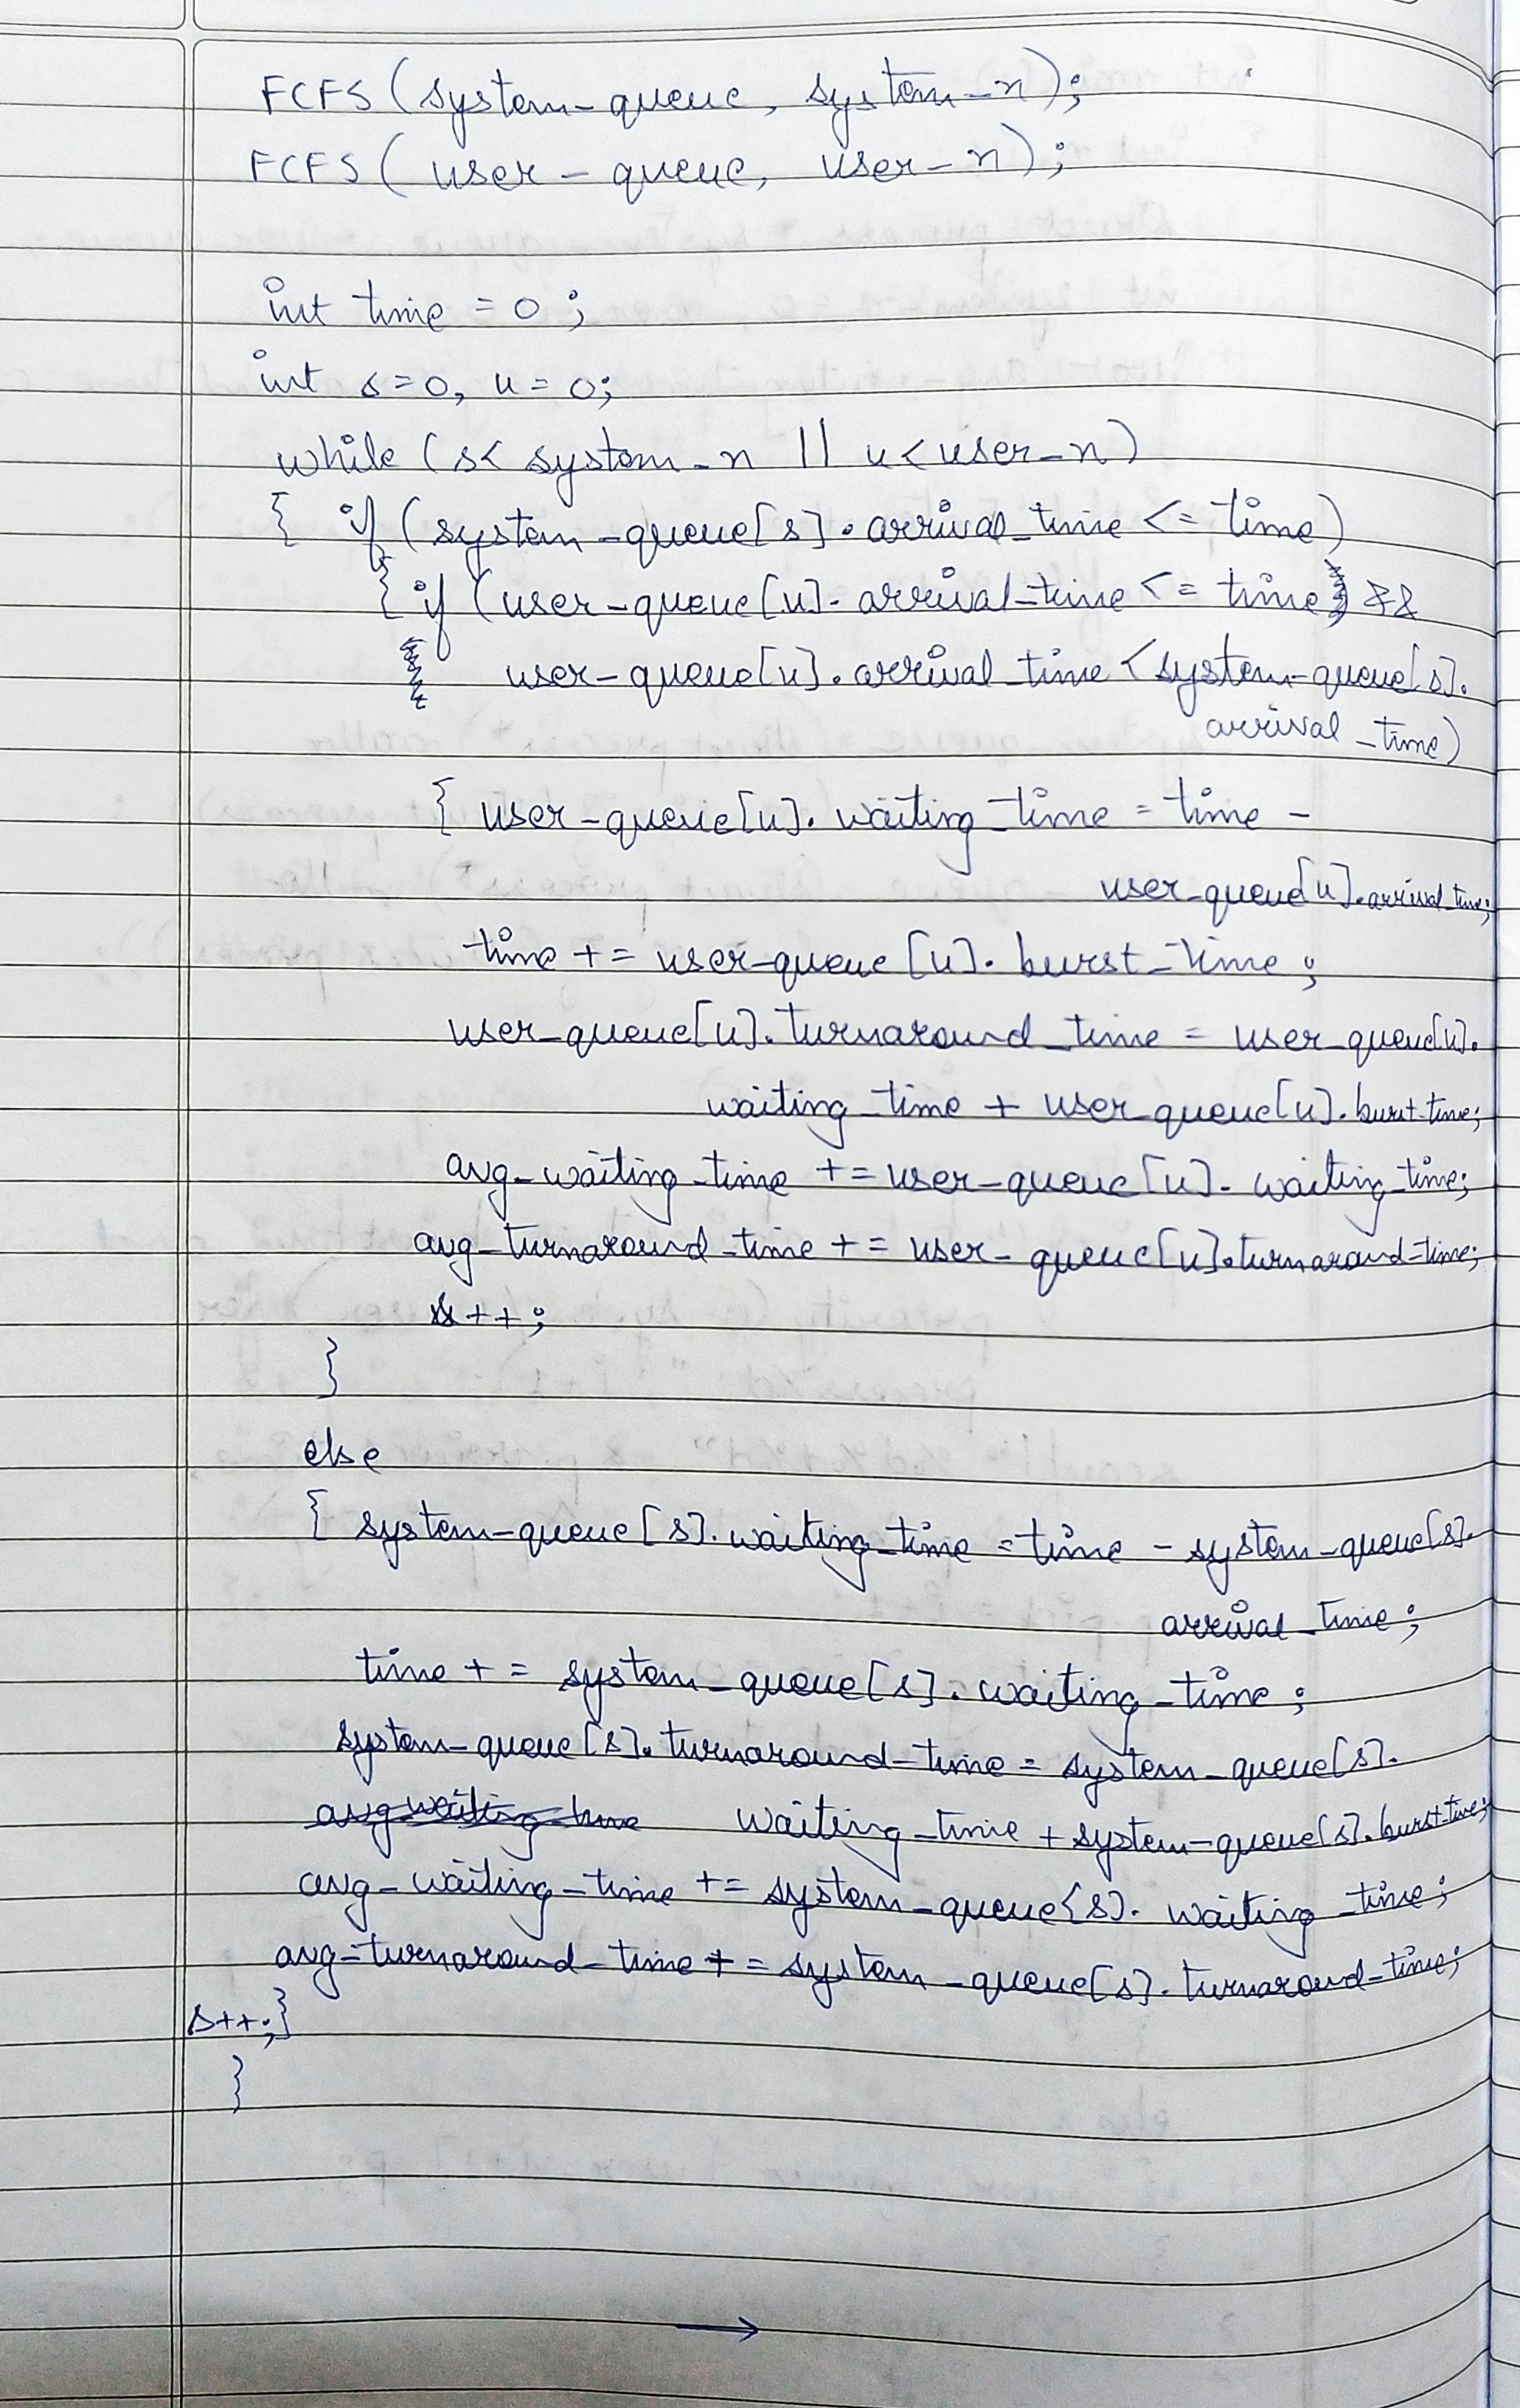 FCFS (system_queue, system_n);
FCFS ( user_queue, user_n);
int time = 0 ;
int s=0, u=0;
while (s< system_n || u<user_n)
{ if (system_queue[s].arrival_time <= time)
{ if (user_queue[u].arrival_time <= time &&
user_queue[u].arrival_time < system_queue[s].
arrival_time)
{ user_queue[u].waiting_time = time -
user_queue[u].arrival_time;
time += user_queue[u].burst_time;
user_queue[u].turnaround_time = user_queue[u].
waiting_time + user_queue[u].burst_time;
avg_waiting_time += user_queue[u].waiting_time;
avg_turnaround_time += user_queue[u].turnaround_time;
s++;
}
else
{ system_queue[s].waiting_time = time - system_queue[s].
arrival_time;
time += system_queue[s].waiting_time;
system_queue[s].turnaround_time = system_queue[s].
avg waiting time waiting_time + system_queue[s].burst_time;
avg_waiting_time += system_queue[s].waiting_time;
avg_turnaround_time += system_queue[s].turnaround_time;
s++;}
}
→